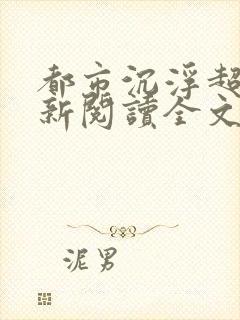 都市沉浮超
新閱讀全文
泥男